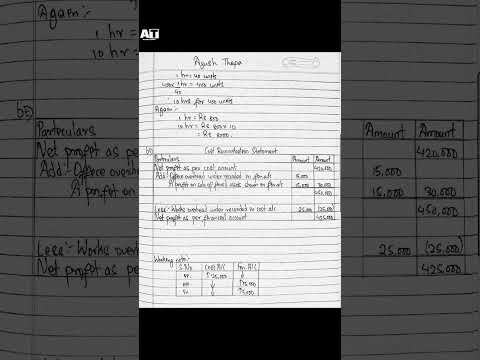 AT
Ayush Thapa
1 hr = 40 units
400 x 1 hr = 400 units
40
∴ 10 hrs for 400 units
Again:-
1 hr = Rs 800
10 hr = Rs 800 x 10
= Rs 8000.
b5)
Cost Reconciliation Statement
Particulars Amount Amount
Net profit as per cost account 420,000
Add:- Office overhead under recorded in fin. a/c 15,000
Profit on sale of fixed assets shown in fin. a/c 15,000 30,000
450,000
Less:- Works overhead under recorded in cost a/c 25,000 (25,000)
Net profit as per financial account 425,000
Working note:-
S.No Cost A/C Fin. A/C
↑25,000 ↓
↓ ↑15,000
↓ ↑15,000
Again:-
1 hr =
10 hr =
b5)
Particulars
Net profit as per
Add:- Office overhead
profit on
Less:- Works over
Net profit as per
Amount Amount
420,000
15,000
15,000 30,000
450,000
25,000 (25,000)
425,000